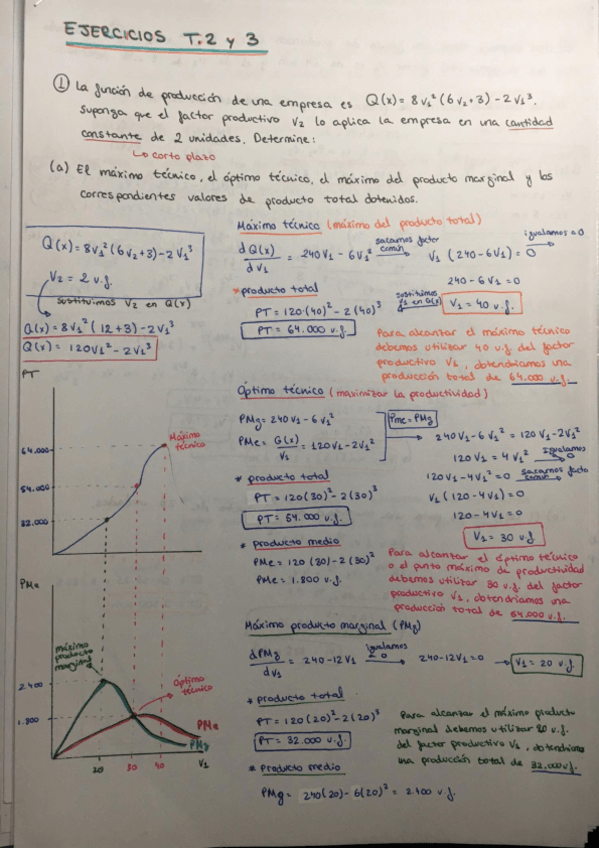 EJERCICIOS T.2 y 3
① La función de producción de una empresa es Q(x) = 8v₁²(6v₂+3) - 2v₁³.
Suponga que el factor productivo v₂ lo aplica la empresa en una cantidad
constante de 2 unidades. Determine:
↳ corto plazo
(a) El máximo técnico, el óptimo técnico, el máximo del producto marginal y los
correspondientes valores de producto total obtenidos.
Q(x) = 8v₁²(6v₂+3) - 2v₁³
V₂ = 2 u.f.
sustituimos V₂ en Q(x)
Q(x) = 8v₁²(12+3) - 2v₁³
Q(x) = 120v₁² - 2v₁³
Máximo técnico (máximo del producto total)
dQ(x)/dv₁ = 240v₁ - 6v₁² sacamos factor común → v₁(240-6v₁) = 0 igualamos a 0
240 - 6v₁ = 0
V₁ = 40 u.f.
sustituimos v₁ en Q(x)
* producto total
PT = 120·(40)² - 2(40)³
PT = 64.000 u.f.
Para alcanzar el máximo técnico
debemos utilizar 40 u.f. del factor
productivo V₁, obtendríamos una
producción total de 64.000 u.f.
PT
64.000
54.000
32.000
Máximo técnico
Óptimo técnico (maximizar la productividad)
PMg = 240v₁ - 6v₁²
PMe = Q(x)/v₁ = 120v₁ - 2v₁²
PMe = PMg
240v₁ - 6v₁² = 120v₁ - 2v₁²
120v₁ = 4v₁² igualamos a 0
120v₁ - 4v₁² = 0 sacamos factor común
v₁(120 - 4v₁) = 0
120 - 4v₁ = 0
V₁ = 30 u.f
* producto total
PT = 120(30)² - 2(30)³
PT = 54.000 u.f.
* producto medio
PMe = 120(30) - 2(30)²
PMe = 1.800 u.f.
Para alcanzar el óptimo técnico
o el punto máximo de productividad
debemos utilizar 30 u.f. del factor
productivo V₁, obtendríamos una
producción total de 54.000 u.f.
PMe
2.400
1.800
máximo producto marginal
Óptimo técnico
PMe
PMg
20 30 40 V₁
Máximo producto marginal (PMg)
dPMg/dv₁ = 240 - 12v₁ igualamos a 0 → 240 - 12v₁ = 0 → V₁ = 20 u.f.
* producto total
PT = 120(20)² - 2(20)³
PT = 32.000 u.f.
* Producto medio
PMg = 240(20) - 6(20)² = 2.400 u.f.
Para alcanzar el máximo producto
marginal debemos utilizar 20 u.f.
del factor productivo V₁, obtendríamos
una producción total de 32.000 u.f.